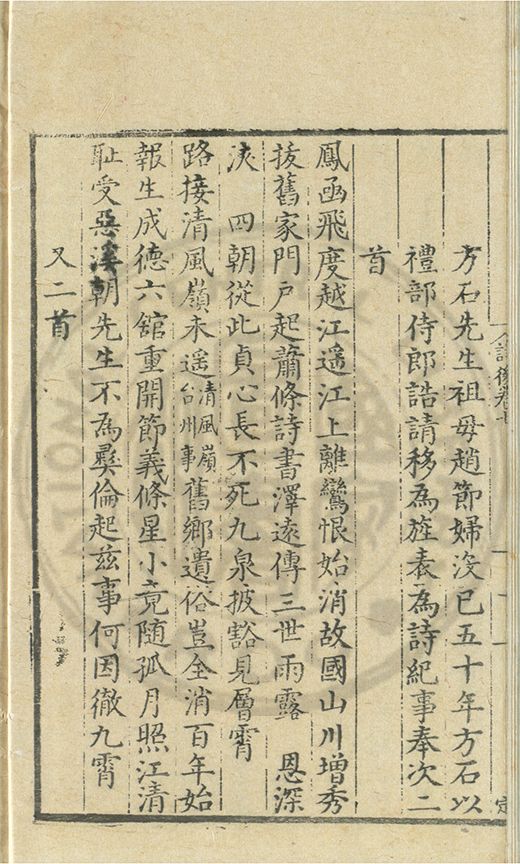 方石先生祖母趙節婦沒已五十年方石以
禮部侍郎誥請移為旌表為詩紀事奉次二
首
鳳函飛度越江遥江上離鸞恨始消故國山川增秀
拔舊家門戶起蕭條詩書澤遠傳三世雨露 恩深
浹 四朝從此貞心長不死九泉披豁見層霄
路接清風嶺未遥清風嶺台州事舊鄉遺俗豈全消百年始
報生成德六館重開節義條星小竟隨孤月照江清
耻受惡溪朝先生不為彛倫起兹事何因徹九霄
又二首